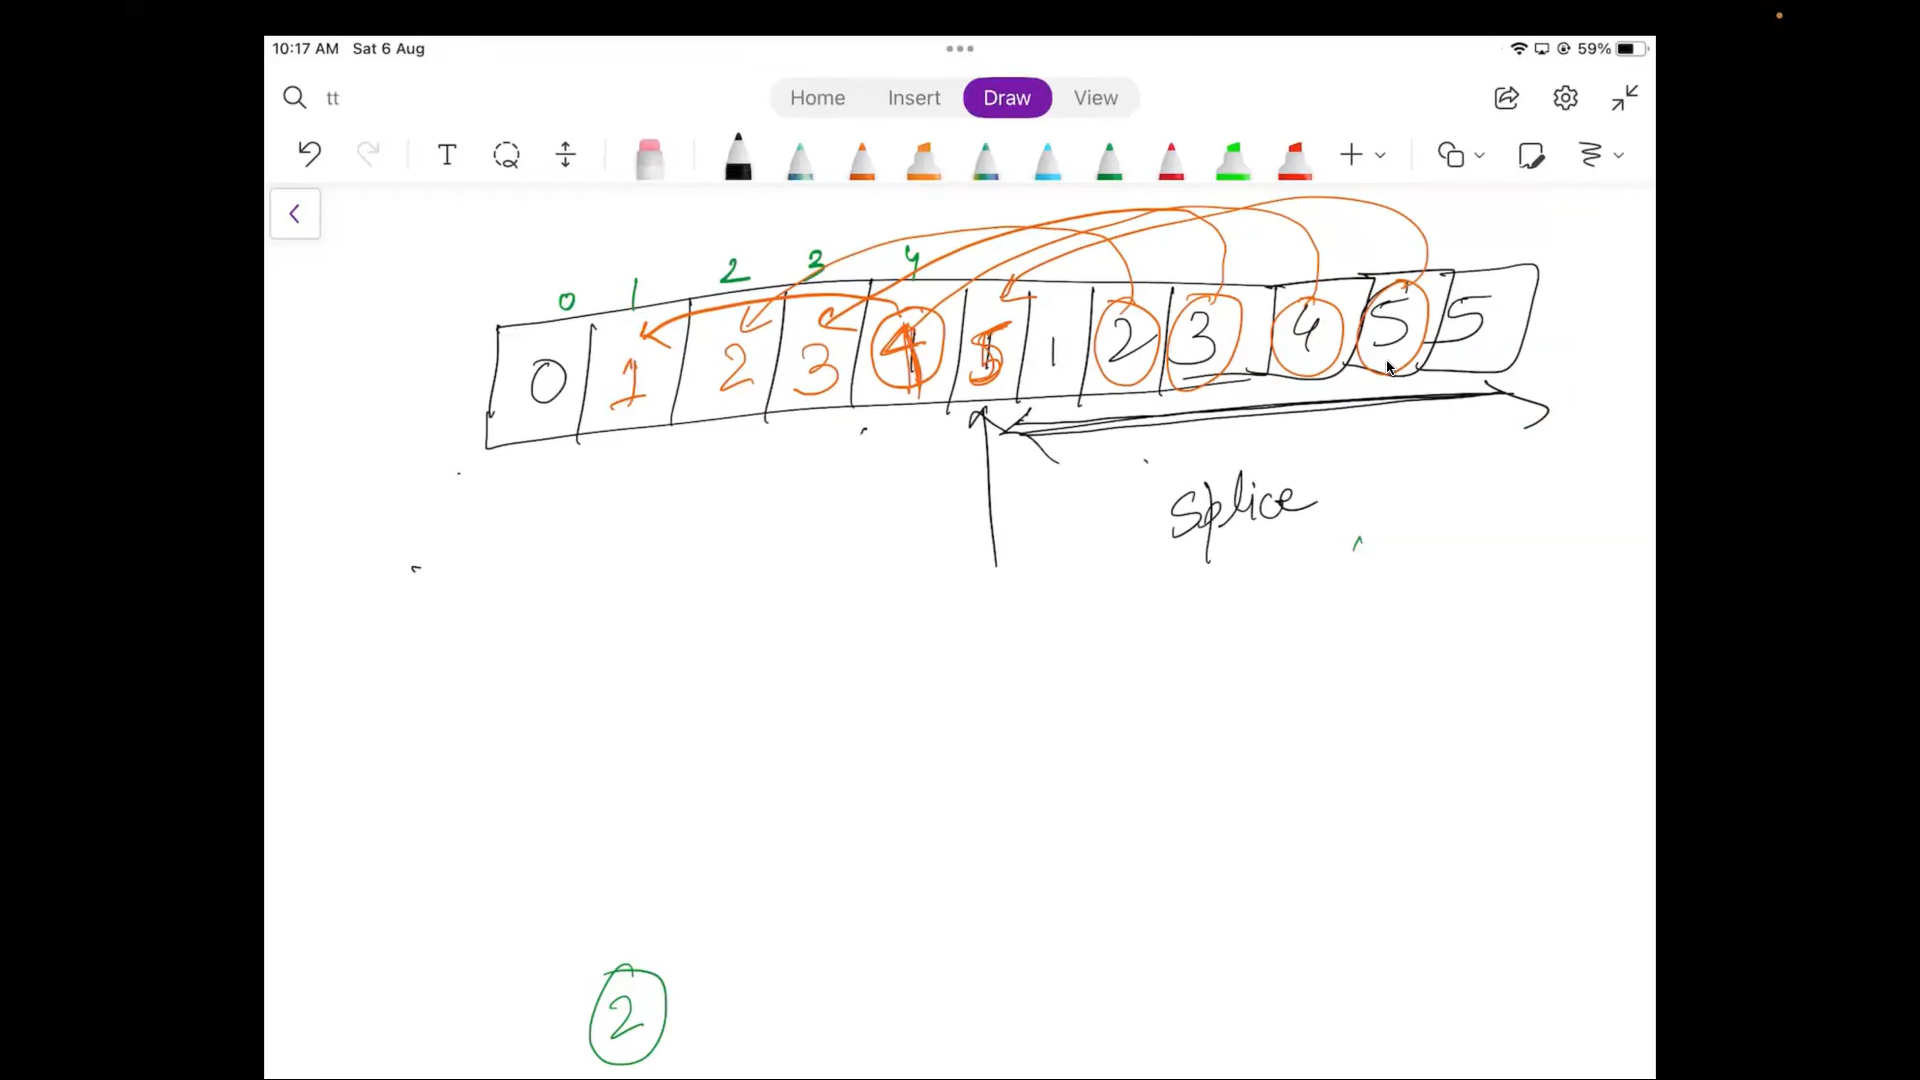 10:17 AM Sat 6 Aug 59%
tt Home Insert Draw View
T
0 1 2 3 4
0 1 2 3 4 5 1 2 3 4 5 5
Splice
2